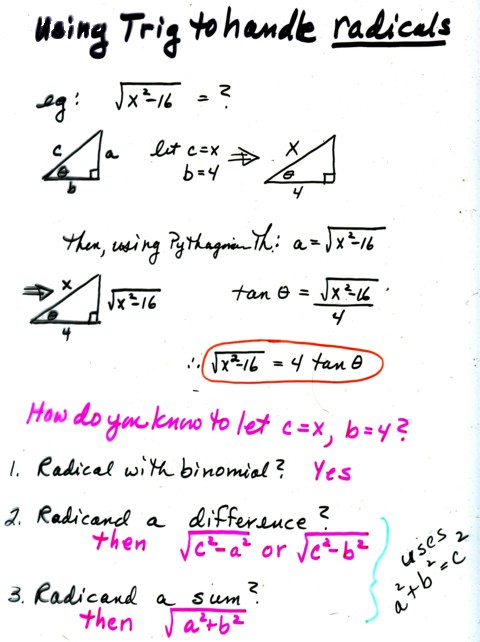 Using Trig to handle radicals
eg: √x²-16 = ?
c a θ b let c=x ⇒ x θ 4
b=4
then, using Pythagorean Th: a = √x²-16
⇒ x √x²-16 θ 4 tan θ = √x²-16 / 4
∴ √x²-16 = 4 tan θ
How do you know to let c=x, b=4?
1. Radical with binomial? Yes
2. Radicand a difference?
then √c²-a² or √c²-b²
3. Radicand a sum?
then √a²+b²
uses
a²+b²=c²